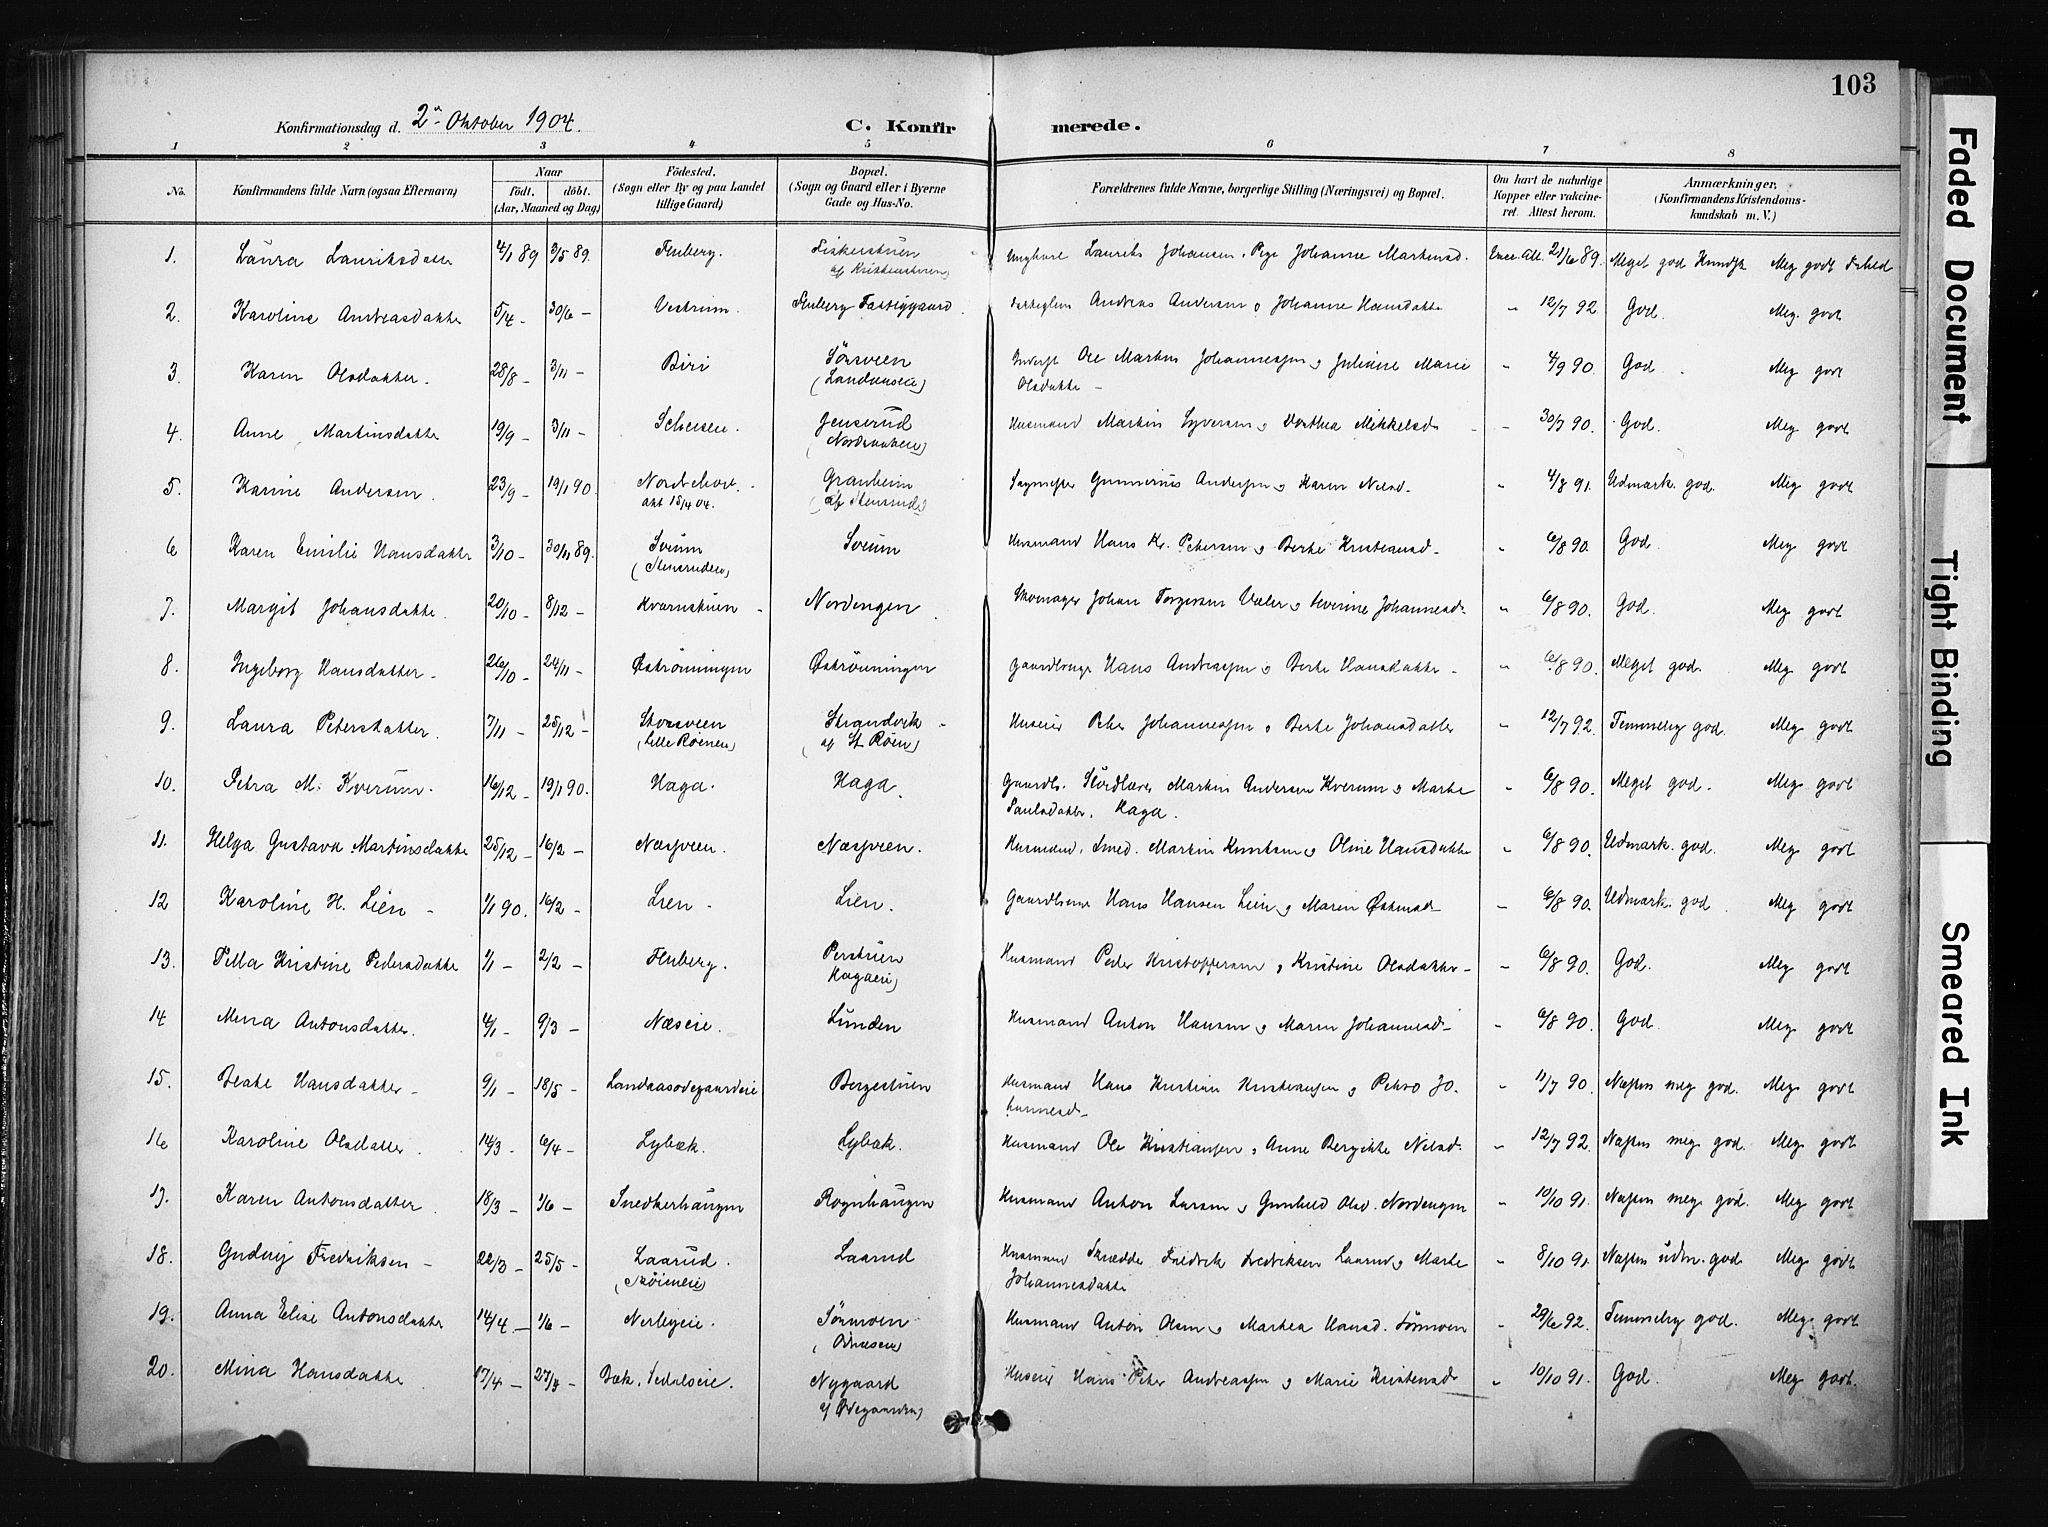 103
Konfirmationsdag d. 2 Oktober 1904.
C. Konfirmerede.
1 2 3 4 5 6 7 8
No. Konfirmandens fulde Navn (ogsaa Efternavn) Naar födt. döbt. (Aar, Maaned og Dag) Födested. (Sogn eller By og paa Landet tillige Gaard) Bopæl. (Sogn og Gaard eller i Byerne Gade og Hus-No. Forældrenes fulde Navne, borgerlige Stilling (Næringsvei) og Bopæl. Om havt de naturlige Kopper eller vakcineret. Attest herom. Anmærkninger, (Konfirmandens Kristendomskundskab m. V.)
1. Laura Lauritsdatter 4/1 89 3/5 89. Fluberg. Fiskerstuen Laurits Johansen, Johanne Martinsd. 21/6 89. Meget god Kundsk Meg godt Forhold
af Kristenstuen)
2. Karoline Andreasdatter 5/4 - 30/6 - Vestrum. Fluberg Fattiggaard. Andreas Andersen og Johanne Hansdatter " 12/7 92. God. Meg. godt
3. Karen Olsdatter. 28/8 - 3/11 - Biri Sönsveen Inderst Ole Martin Johannessen og Juliane Marie " 4/9 90. God. Meg godt
(Landaaseie) Olsdatter -
4. Anne Martinsdatter 19/9 - 3/11 - Jensrud Husmand Martin Syversen og Dorthea Mikkelsd - " 30/7 90. God. Meg godt
5. Karine Andersen. 23/9 - 19/1 90. Granheim Gunnerius Andersen og Karen Nilsd - " 4/8 91. Udmark. god. Meg godt
att 15/4 04. (af Stensrud)
6 Karen Emilie Hansdatter 3/10 - 30/11 89. Sveum Sveum Husmand Hans Kr. Petersen og Berte Kristiansd - " 6/8 90. God. Meg godt
(Stensrudeie)
7. Margit Johansdatter. 20/10 - 8/12 - Kvernstuen - Nordengen. Skomager Johan Torgersen Væler og Severine Johannesd " 6/8 90. God. Meg godt
8. Ingeborg Hansdatter - 26/10 - 24/11 - Øströnningen Øströnningen Gaardbruger Hans Andreassen og Berte Hansdatter - " 6/8 90. Meget god. Meg godt
9. Laura Petersdatter. 7/11 - 25/12 - Skorsveen Strandvik - Huseier Peter Johannessen og Berte Johansdatter " 12/7 92. Temmelig god. Meg godt
(Lille Röeneie) af St. Röen)
10. Petra M. Kverum. 16/12 - 19/1 90. Haga. Haga. Gaardb. Martin Andersen Kverum og Marte " 6/8 90. Meget god. Meg godt
Paulsdatter. Haga.
11. Helga Gustava Martinsdatter 25/12 - 16/2 - Næsveen. Næsveen. Husmand, Smed. Martin Knutsen og Oline Hansdatter " 6/8 90. Udmark. god. Meg godt
12 Karoline H. Lien - 1/1 90. 16/2 - Lien - Lien. Hans Hansen Lien og Maren Østensd - " 6/8 90. Udmark. god. Meg godt
13. Pella Kristine Pedersdatter 1/1 - 2/2 - Fluberg. Perstuen Husmand Peder Kristoffersen og Kristine Olsdatter - " 6/8 90. God. Meg godt
Hagaeie)
14 Mina Antonsdatter. 4/1 - 9/3 - Næseie. Lunden Husmand Anton Hansen og Maren Johannesd - " 6/8 90. God. Meg godt
15. Beate Hansdatter - 9/1 - 18/5 - Landaasödegaardeie Bergestuen Husmand Hans Kristian Kristiansen og Petra Jo- " 11/7 90. Næsten meg god. Meg godt
hannesd -
16 Karoline Olsdatter. 14/3 - 6/4 - Lybæk. Lybæk. Husmand Ole Kristiansen og Anne Bergitte Nilsd. " 12/7 92. Næsten meg god. Meg godt
17. Karen Antonsdatter. 18/3 - 1/6 - Snedkerhaugen Rognhaugen Husmand Anton Larsen og Gunhild Olsd. Nordengen " 10/10 91. Næsten meg god. Meg godt
18. Gudny Fredriksen - 22/3 - 25/5 - Laarud. Laarud Husmand Skrædder Fredrik Fredriksen Laarud og Marte " 8/10 91. Næsten udm. god Meg godt
Johannesdatter
19. Anna Elise Antonsdatter 14/4 - 1/6 - Nerbyeie. Sönmoen Husmand Anton Olsen og Martea Hansd. Sönmoen " 29/6 92. Temmelig god. Meg godt
(Odnæseie)
20. Mina Hansdatter. 17/4 - Bæk. Nygaard Huseier Hans Peter Andreassen og Marie Kristensd " 10/10 91. God. Meg godt.
af Ødegaarden)
Faded Document
Tight Binding
Smeared Ink